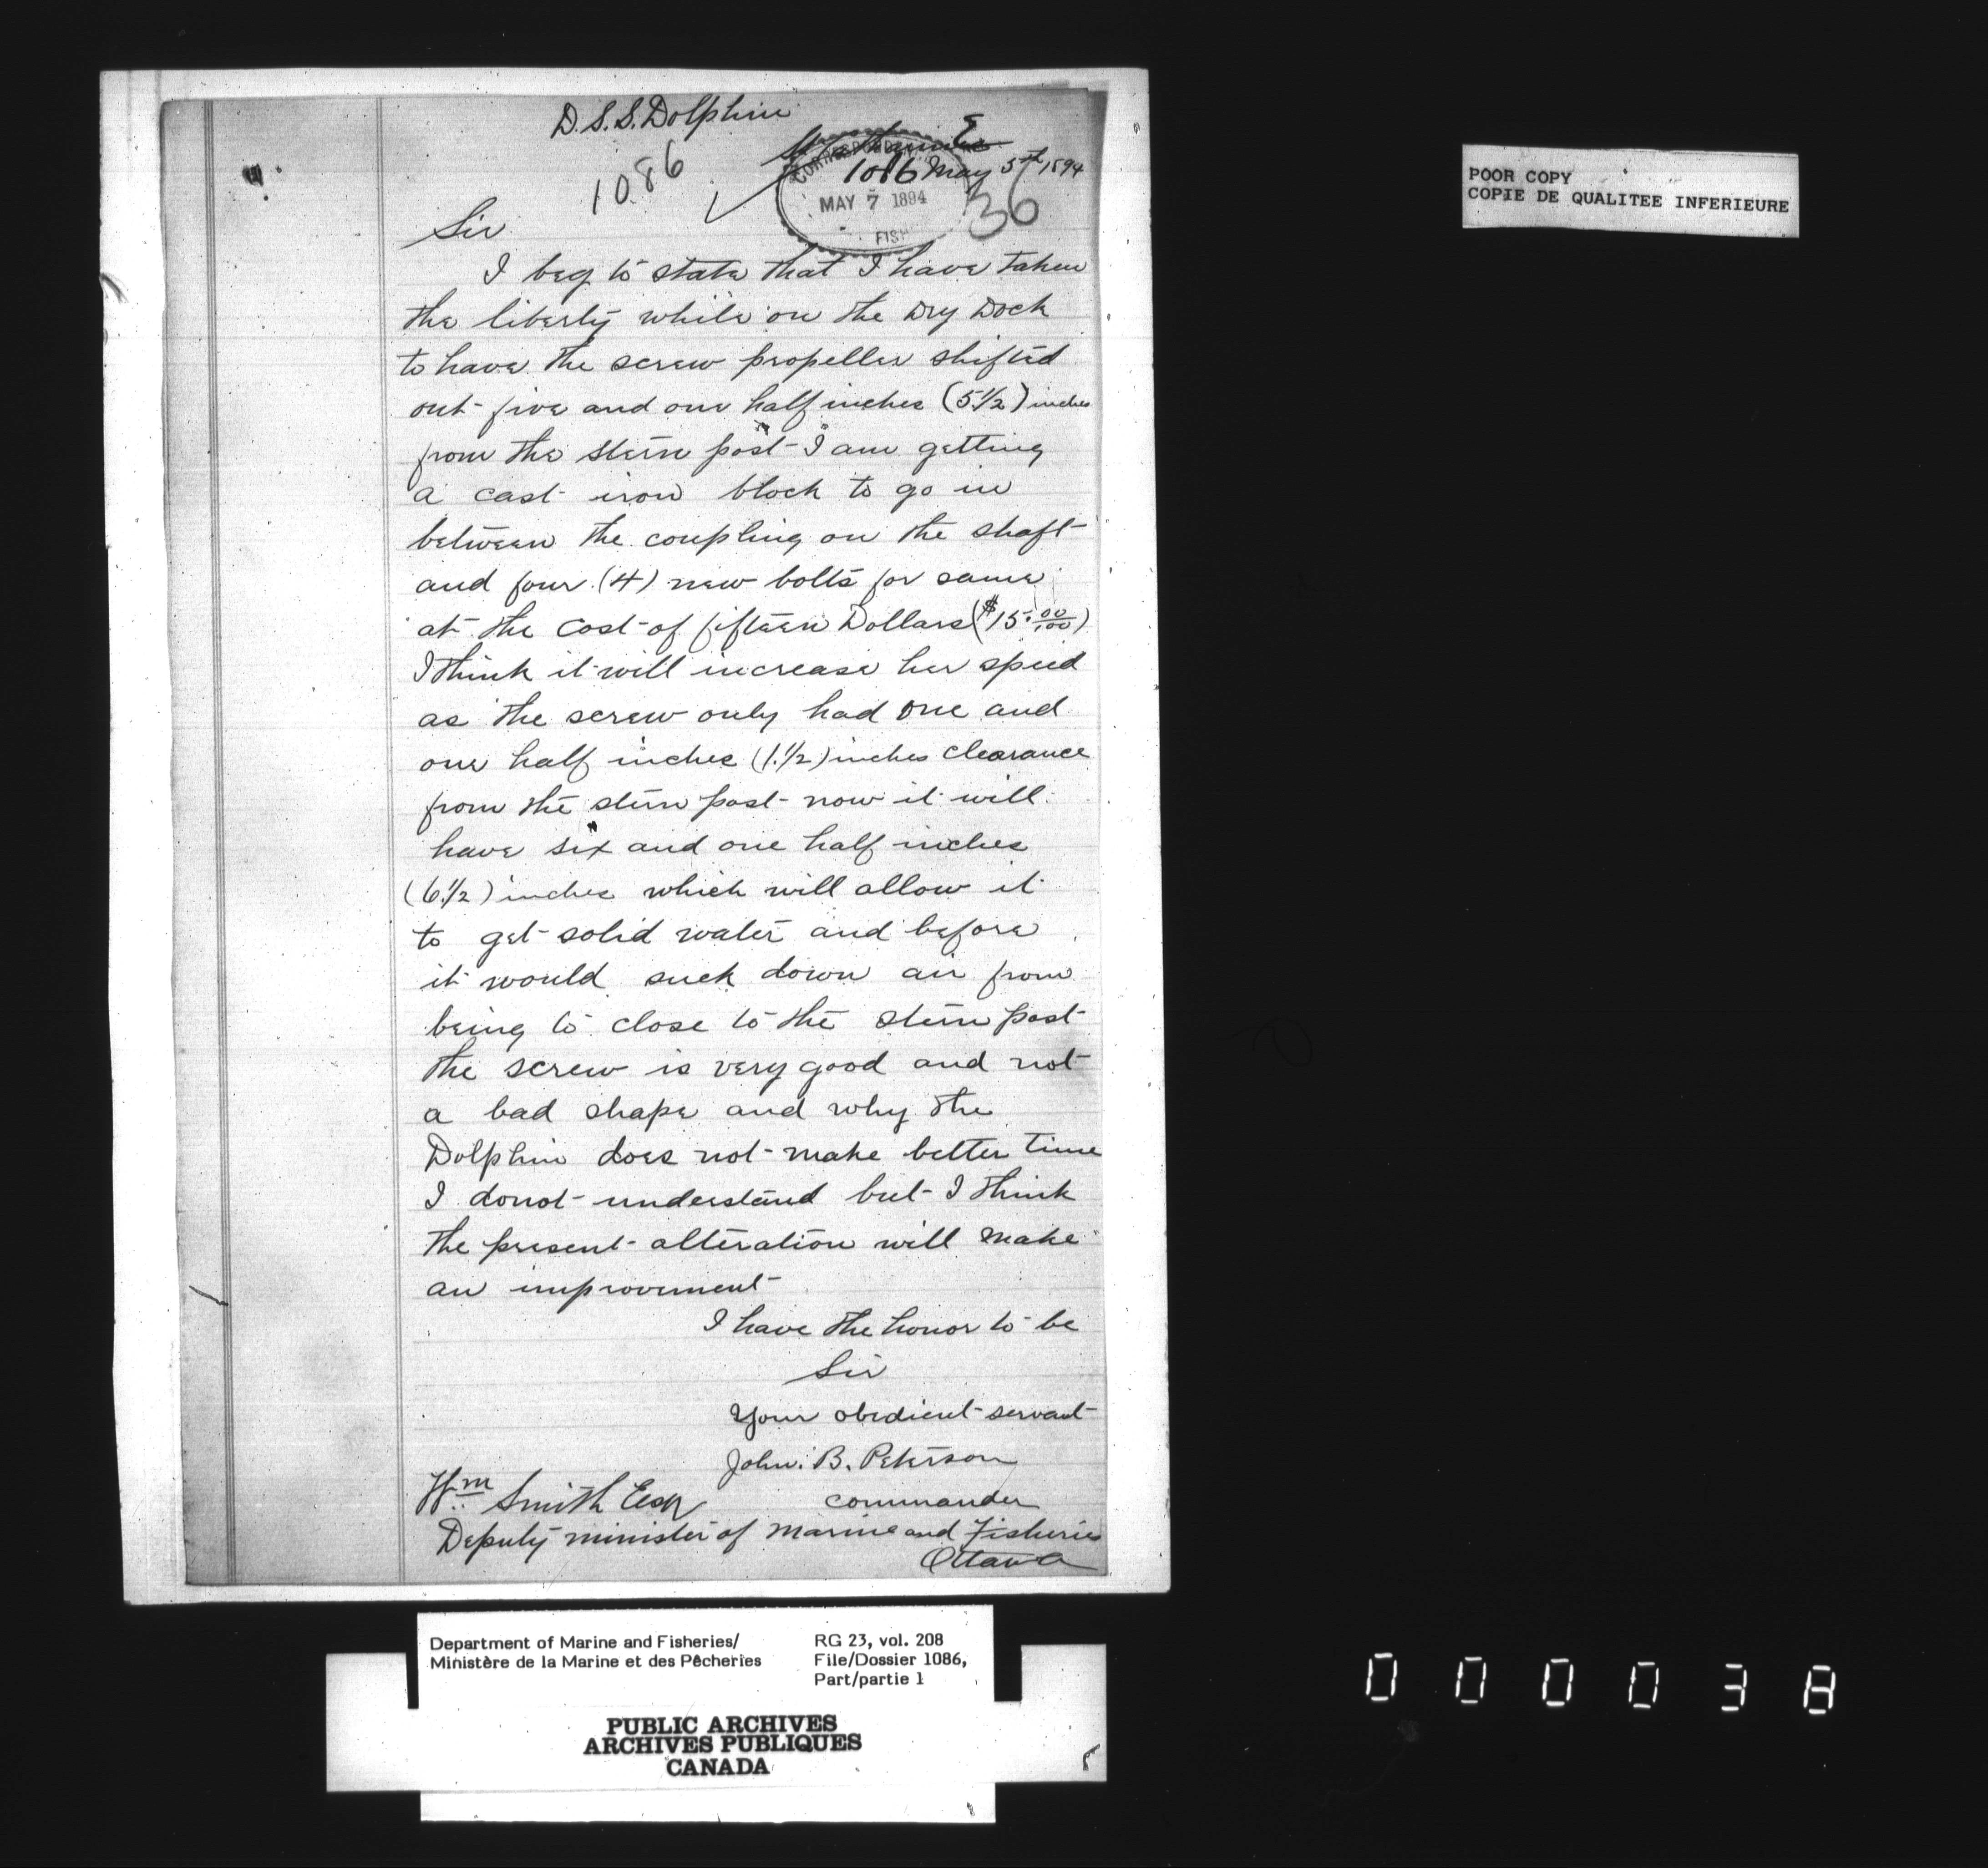 D.S.S. Dolphin
E
1086
1086 May 5th 1894
CORRESPONDEN
MAY 7 1894
FISH
36
Sir
I beg to state that I have taken
the liberty while on the Dry Dock
to have the screw propeller shifted
out five and one half inches (5 1/2) inches
from the stern post I am getting
a cast iron block to go in
between the coupling on the shaft
and four (4) new bolts for same
at the cost of fifteen Dollars ($15.00/100)
I think it will increase her speed
as the screw only had one and
one half inches (1.1/2) inches clearance
from the stern post now it will
have six and one half inches
(6 1/2) inches which will allow it
to get solid water and before
it would suck down air from
being to close to the stern post
the screw is very good and not
a bad shape and why the
Dolphin does not make better time
I donot understand but I think
the present alteration will make
an improvement
I have the honor to be
Sir
Your obedient servant
John. B. Peterson
commander
Wm Smith Esqr
Deputy minister of marine and Fisheries
Ottawa
POOR COPY
COPIE DE QUALITEE INFERIEURE
Department of Marine and Fisheries/
Ministère de la Marine et des Pêcheries
RG 23, vol. 208
File/Dossier 1086,
Part/partie 1
PUBLIC ARCHIVES
ARCHIVES PUBLIQUES
CANADA
000038